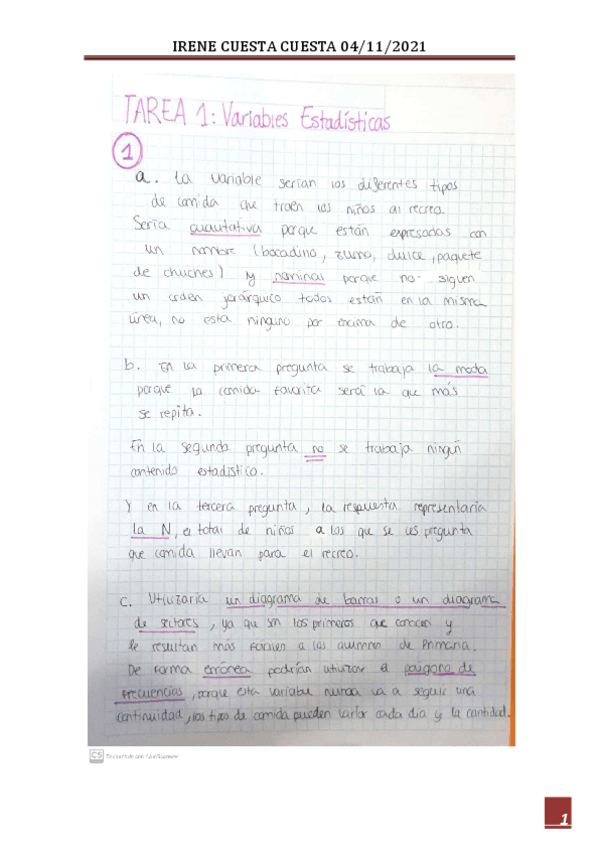 IRENE CUESTA CUESTA 04/11/2021
TAREA 1: Variables Estadísticas
1
a. La variable serían los diferentes tipos
de comida que traen los niños al recreo.
Sería cualitativa porque están expresadas con
un nombre (bocadino, zumo, dulce, paquete
de chuches) y nominal porque no siguen
un orden jerárquico todos están en la misma
línea, no esta ninguno por encima de otro.
b. En la primera pregunta se trabaja la moda
porque la comida favorita será la que más
se repita.
En la segunda pregunta no se trabaja ningún
contenido estadístico.
Y en la tercera pregunta, la respuesta representaría
la N, el total de niños a los que se les pregunta
que comida llevan para el recreo.
c. Utilizaría un diagrama de barras o un diagrama
de sectores, ya que son los primeros que conocen y
le resultan más fáciles a los alumno de Primaria.
De forma errónea podrían utilizar el polígono de
frecuencias, porque esta variable nunca va a seguir una
continuidad, los tipos de comida pueden variar cada día y la cantidad.
CS Escaneado con CamScanner
1